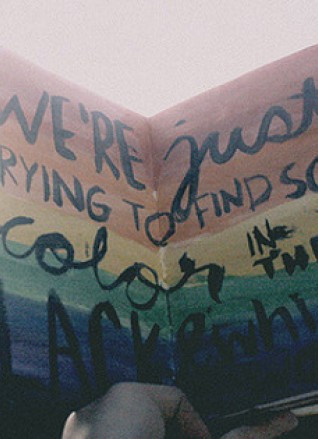 WE'RE just
TRYING TO FIND SO
color IN THE
BLACK & whi